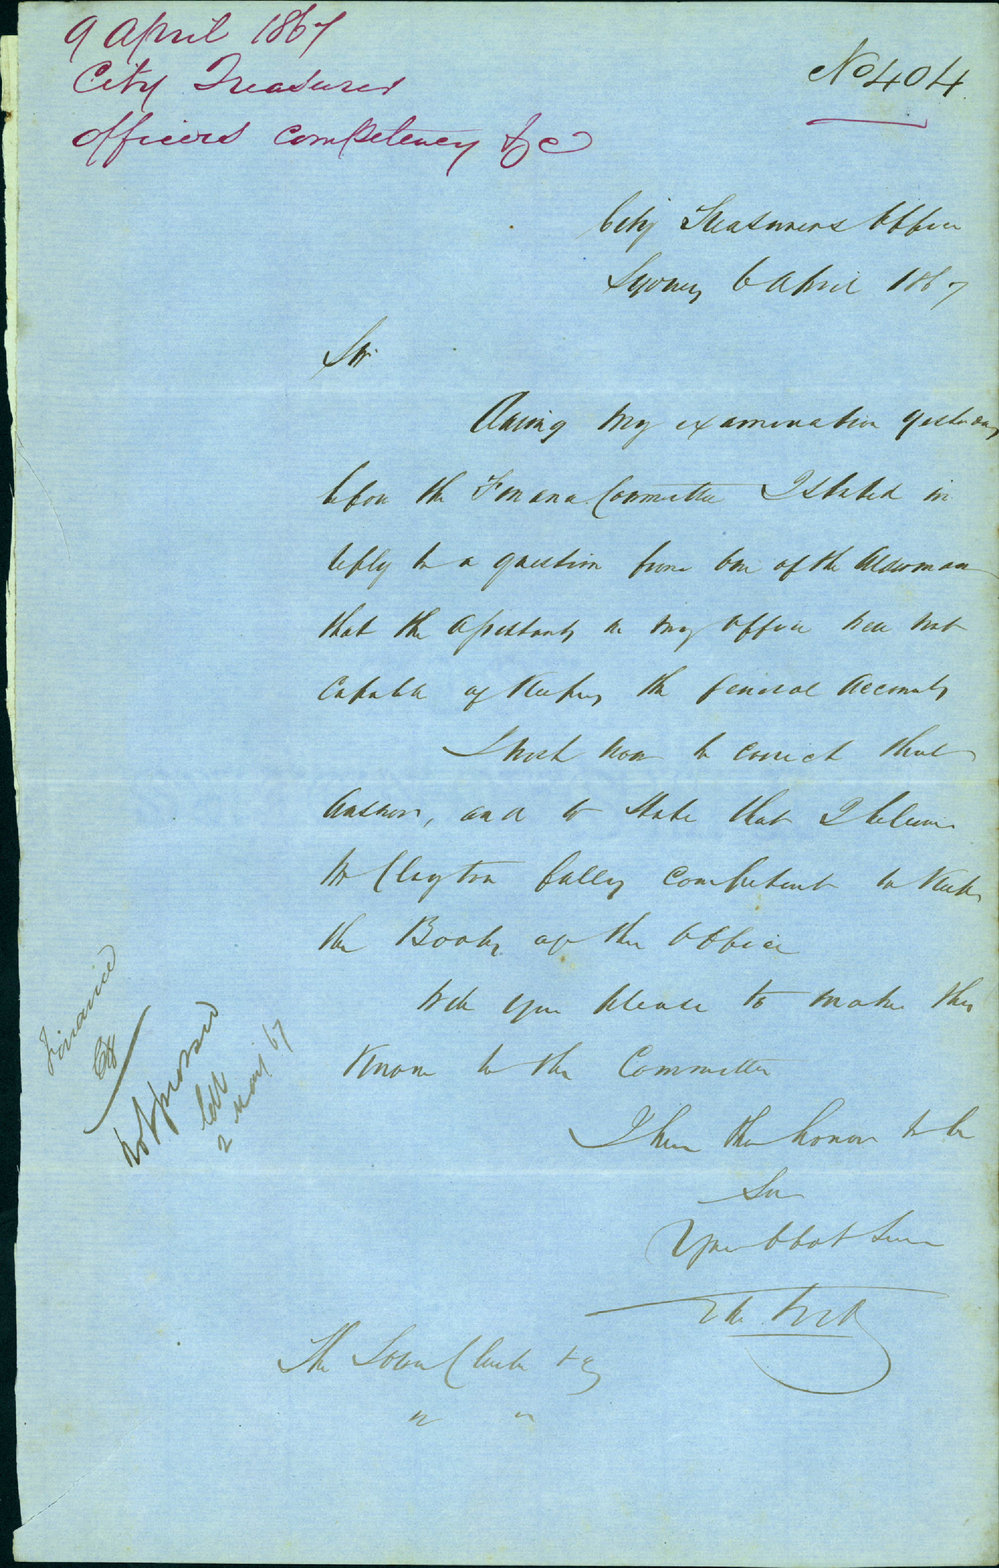 9 April 1867
City Treasurer
Officers Competency &c
No 404
City Treasurers Office
Sydney 6 April 1867
Sir
During my examination yesterday
before the Finance Committee I stated in
reply to a question from one of the Aldermen
that the Assistants in my office were not
capable of keeping the general Accounts
I wish now to correct that
answer, and to state that I believe
Mr Clayton fully competent to keep
the Books of the Office
Will you please to make this
known to the Committee
I have the honor to be
Sir
Your Obdt Serv
The Town Clerk
" "
Finance
Not pressed
2 May 67